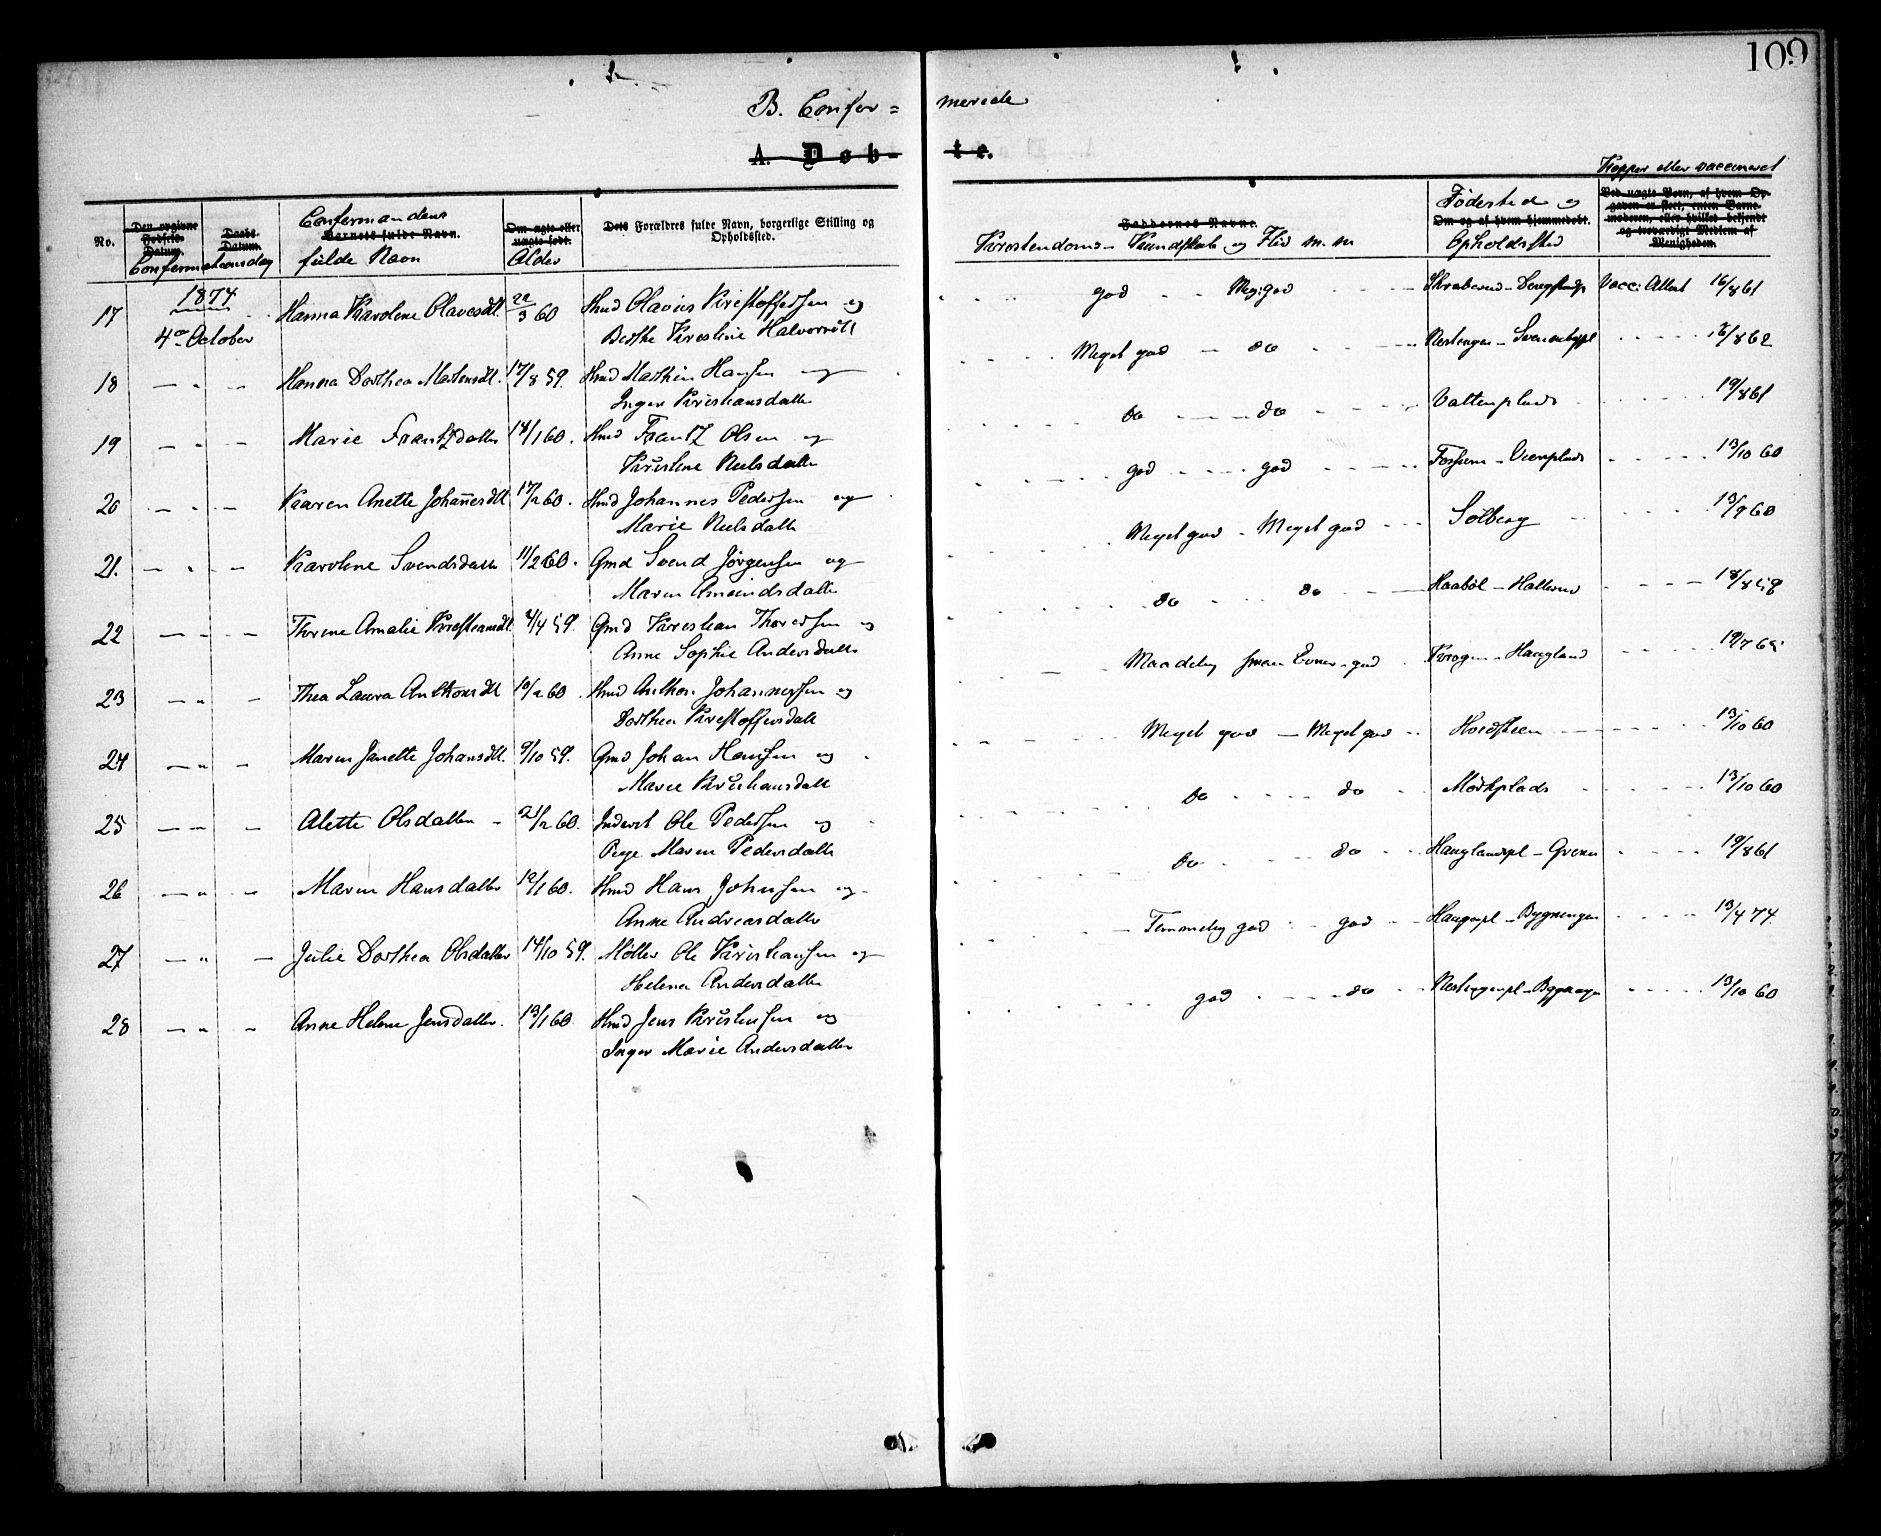 109
B. Confer = merede
A. Døb- te.
Kopper eller vaccineret
No.
Den opgivne Fødsels-Datum.
Daabs-Datum.
Confermationsdag
Confermandens
Barnets fulde Navn.
fulde Navn
Om ægte eller uægte født.
Alder
Dets Forældres fulde Navn, borgerlige Stilling og Opholdssted.
Faddernes Navne.
Kirstendoms- Kundskab og Flid m. m
Fødested og
Om og af hvem hjemmedøbt.
Opholdssted
Ved uægte Børn, af hvem Opgaven er skeet, enten Barnemoderen, eller hvilket bekjendt og troværdigt Medlem af Menigheden.
1874
17 4de October Hanna Karoline Olavesdt. 22/3 60 Hmd Olavus Kristoffersen og god Meg: god Vacc: Attest 16/8 61
Berthe Kirstine Halvorsdtt
18 — " — Hanna Dorthea Matensdt. 17/8 59. Hmd Mathin Hansen og Meget god — do 8 62
Inger Kristiansdatter
19 — " — Marie Frantzdatter 18/1 60. Hmd Frantz Olsen og Do — do Valtenplads 19/8 61
Kristine Nielsdatter
20 — " — Karen Anette Johannesdtt 17/2 60. Hmd Johannes Pedersen og god god Fossum - 13/10 60
Marie Nielsdatter
21. — " — Karoline Svendsdatter 11/2 60. Gmd Svend Jörgensen og Meget god - Meget god Solberg 13/9 60
Maren Amundsdatter
22 — " — Thrine Amalie Kristiansdt. 4 59. Gmd Kristian Thoresen og do do Haabøl - 18/8 59
Anne Sophie Andersdatter
23 — " — Thea Laura Anthonsdt 10/2 60 Hmd Anthon Johannessen og Maadelig smaa Evner - god Krogen - Haugland 19/7
Dorthea Kristoffersdatt
24 — " — Maren Janette Johansdtt. 9/10 59. Gmd Johan Hansen og Meget god — Meget god Hvidsteen 13/10 60
Marie Kristiansdatt
25 — " — Alette Olsdatter 21/2 60. Inderst Ole Pedersen og Do do Mörkplads 13/10 60
Pige Maren Pedersdatter
26 — " — Maren Hansdatter 12/1 60. Hmd Hans Johnsen og Do do Hauglandspl - 19/8 61
Anne Andreasdatter
27 — " — Julie Dorthea Olsdatter 14/10 59. Møller Ole Kristiansen og Temmelig god god - Bygningen 13/4 74
Helena Andersdatter
28 — " — Anne Helene Jensdatter. 13/1 60. Hmd Jens Kristensen og god do 13/10 60
Inger Marie Andersdatter